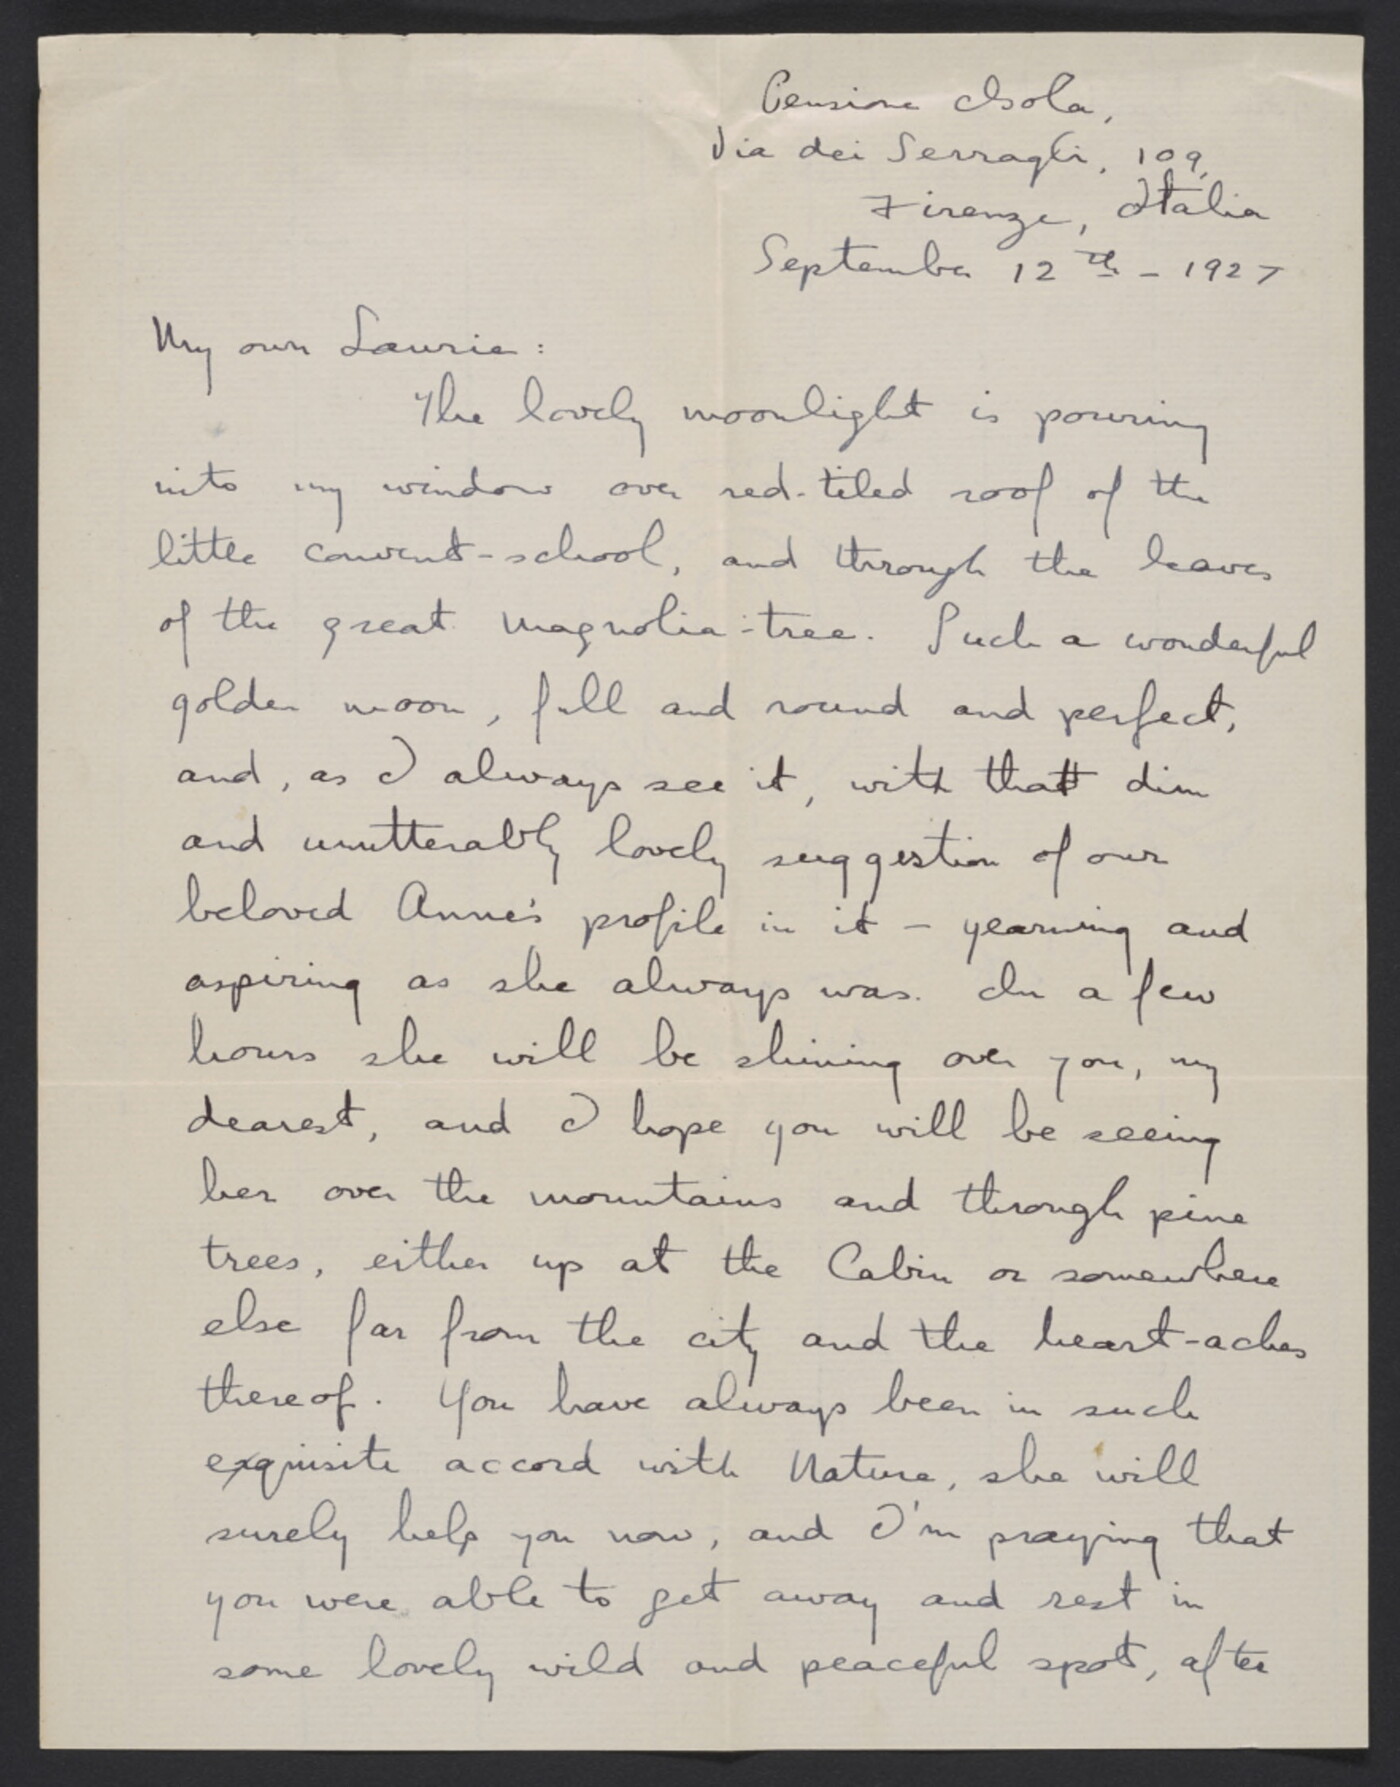 Pensione Isola,
Via dei Serragli, 109,
Firenze, Italia
September 12th - 1927
My own Laurie:
The lovely moonlight is pouring
into my window over red-tiled roof of the
little convent-school, and through the leaves
of the great magnolia-tree. Such a wonderful
golden moon, full and round and perfect,
and, as I always see it, with that dim
and unutterably lovely suggestion of our
beloved Anne's profile in it - yearning and
aspiring as she always was. In a few
hours she will be shining over you, my
dearest, and I hope you will be seeing
her over the mountains and through pine
trees, either up at the Cabin or somewhere
else far from the city and the heart-aches
thereof. You have always been in such
exquisite accord with Nature, she will
surely help you now, and I'm praying that
you were able to get away and rest in
some lovely wild and peaceful spot, after